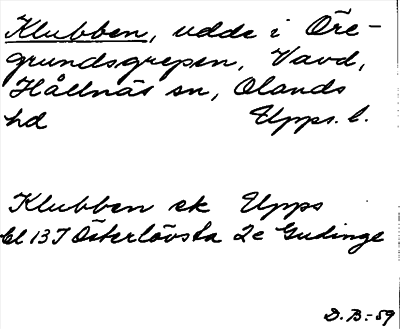 Klubben, udde i Öre-
grundsgrepen, Vavd,
Hållnäs sn, Olands
hd Upps. l.
Klubben ek Upps
bl 13 I Österlövsta 2c Gudinge
D.B:-59